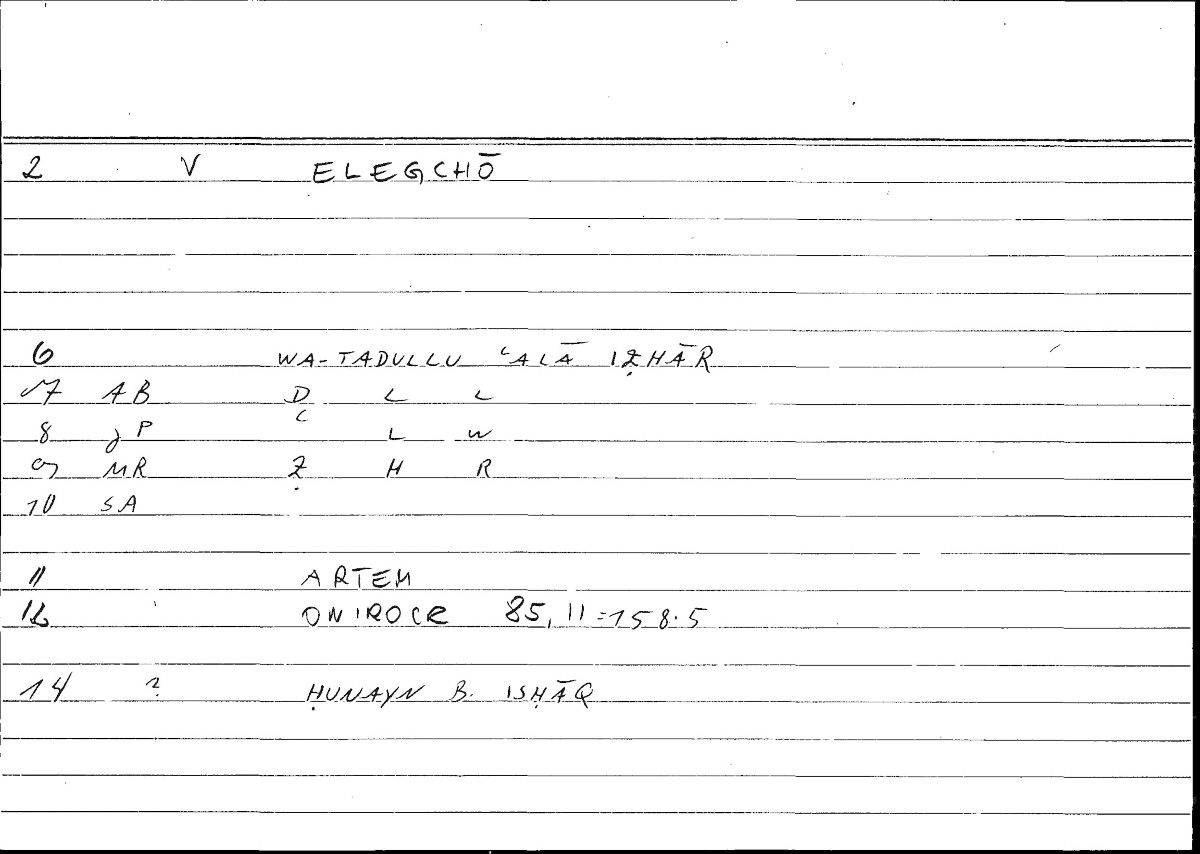 2 V ELEGCHŌ
6 WA-TADULLU ʿALĀ IẒHĀR
7 AB D L L
8 JP ʿ L W
9 MR Ẓ H R
10 SA
11 ARTEM
12 ONIROCR 85, 11 = 158.5
14 ? ḤUNAYN B. ISḤĀQ